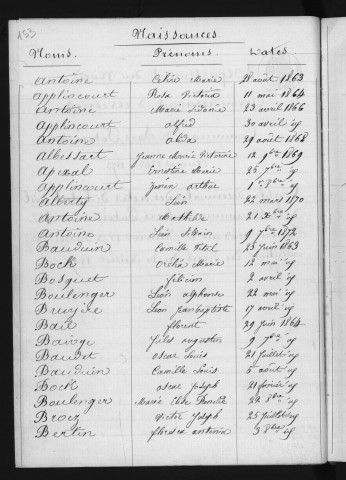 153
Naissances
Noms. Prénoms Dates
Antoine Orhée Marie 28 août 1863
Applincourt Rosa Victoria 11 mai 1864
Antoine Marie 23 avril 1866
Applincourt Alfred 30 avril id
Antoine Alida 29 août 1868
Albessart Jeanne Marie Victorine 12 9bre 1869
Apexat Ernestine Marie 25 7bre id
Applincourt Junien Arthur 1er 8bre id
Alberty Léon 22 mars 1870
Antoine Mathilde 21 Xbre id
Antoine Léon 9 7bre 1872
Bauduin Camille Vital 23 juin 1863
Bock Orhée Marie 12 mai id
Bosquet félicien 2 avril id
Boulenger Léon alphonse 22 mai id
Bruyère Léon Jean baptiste 17 avril id
Bail florent 29 juin 1864
Bavoye Jules augustin 9 7bre id
Baudet oscar Louis 21 juillet id
Bauduin Camille Louis 5 août id
Bock oscar Joseph 21 février id
Boulenger Marie 22 8bre id
Broez Victor Joseph 25 Juillet id
Bertin antonia 3 8bre id